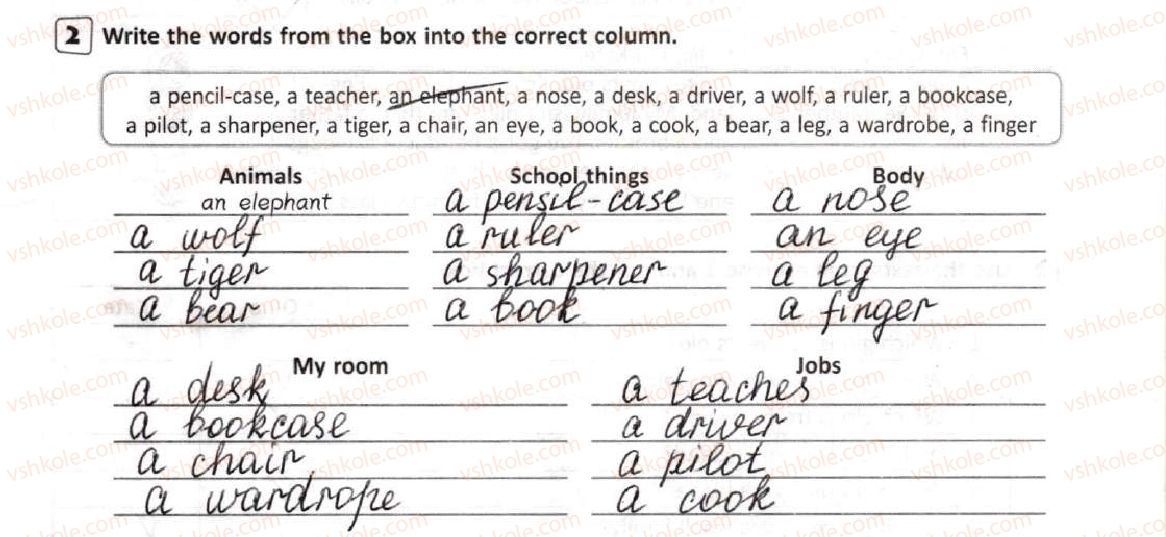 2 Write the words from the box into the correct column.
a pencil-case, a teacher, an elephant, a nose, a desk, a driver, a wolf, a ruler, a bookcase,
a pilot, a sharpener, a tiger, a chair, an eye, a book, a cook, a bear, a leg, a wardrobe, a finger
Animals School things Body
an elephant a pensil-case a nose
a wolf a ruler an eye
a tiger a sharpener a leg
a bear a book a finger
My room Jobs
a desk a teaches
a bookcase a driver
a chair a pilot
a wardrope a cook
vshkole.com